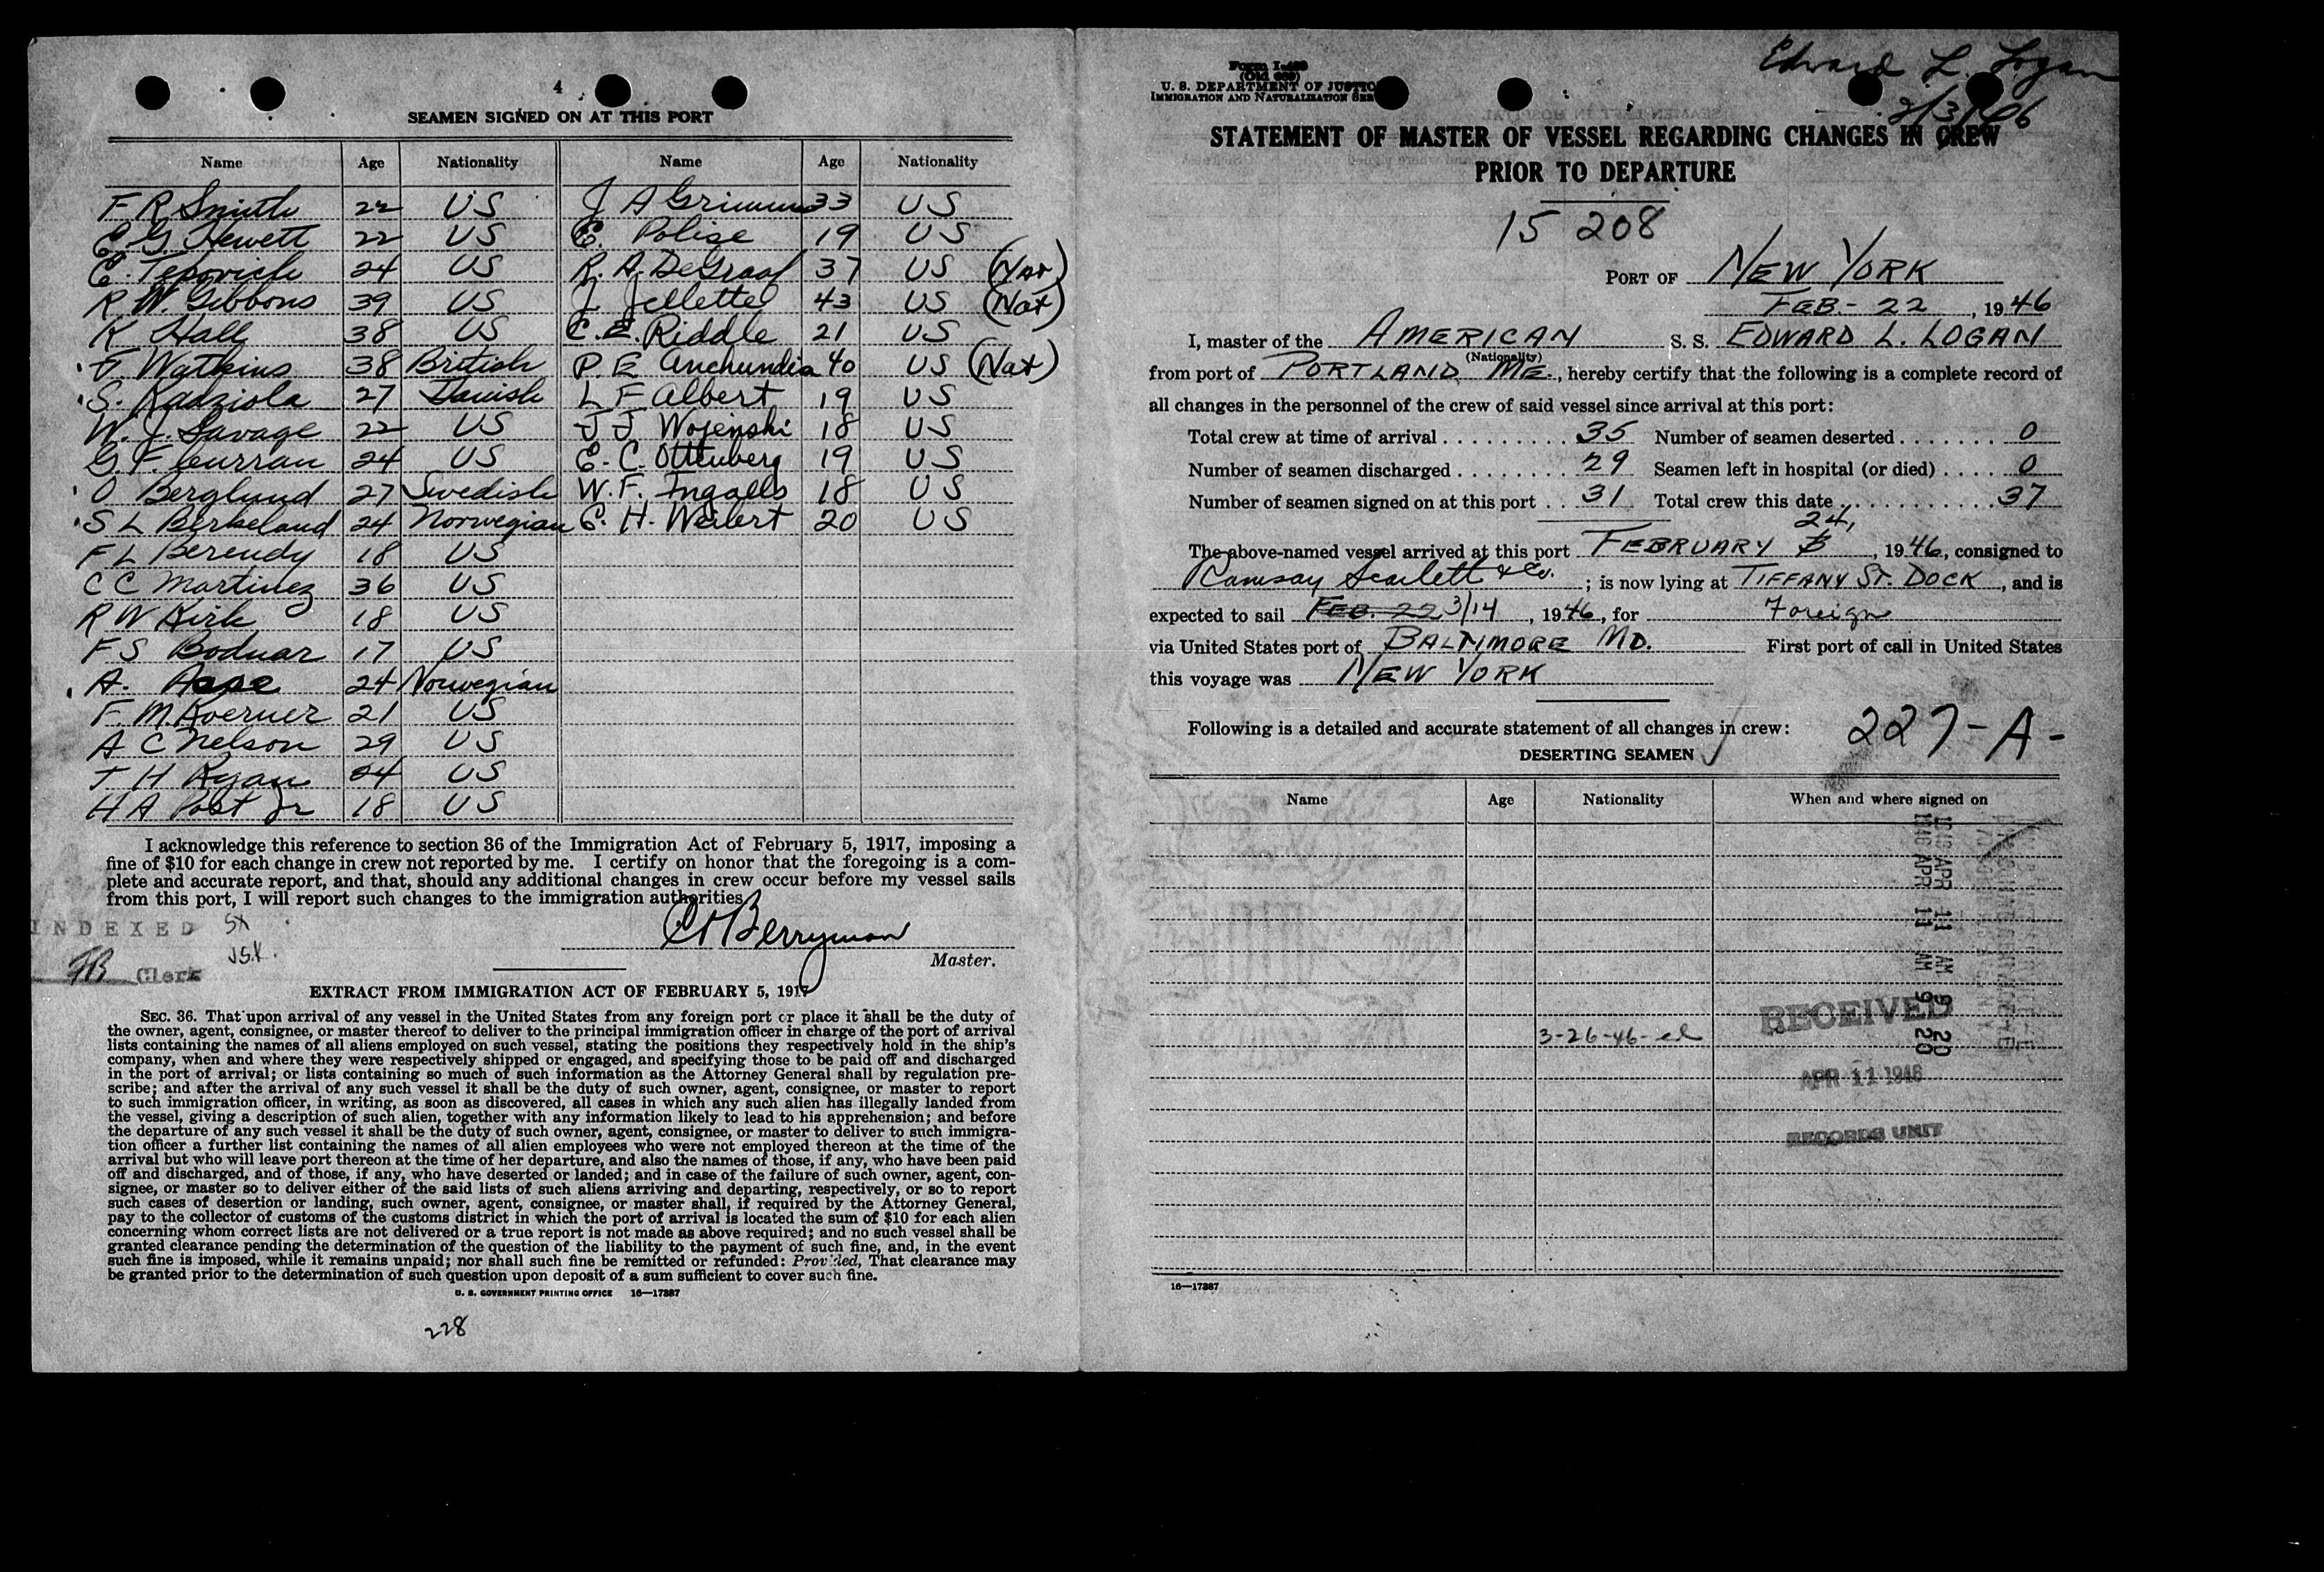 4
SEAMEN SIGNED ON AT THIS PORT
Name Age Nationality Name Age Nationality
F R Smith 22 US J A Grimm 33 US
E. G. Hewett 22 US E. Polise 19 US
E. Tepovich 24 US R. A. DeGraaf 37 US (Nat)
R. W. Gibbons 39 US J. Jellette 43 US (Nat)
K Hall 38 US C. E. Riddle 21 US
F Watkins 38 British P E Anchundia 40 US (Nat)
S. Radziola 27 Danish L F Albert 19 US
W. J. Savage 22 US J J Wojenski 18 US
G. F. Curran 24 US E. C. Ottenberg 19 US
O Berglund 27 Swedish W. F. Ingalls 18 US
S L Berkeland 24 Norwegian E. H. Weilert 20 US
F L Berendy 18 US
C C Martinez 36 US
R W Kirk 18 US
F S Bodnar 17 US
A. 24 Norwegian
F. M. Koerner 21 US
A C Nelson 29 US
T H Ryan 24 US
H A Post Jr 18 US
I acknowledge this reference to section 36 of the Immigration Act of February 5, 1917, imposing a
fine of $10 for each change in crew not reported by me. I certify on honor that the foregoing is a com-
plete and accurate report, and that, should any additional changes in crew occur before my vessel sails
from this port, I will report such changes to the immigration authorities.
INDEXED SX
J.S.K.
FB Clerk
C H Berryman
Master.
EXTRACT FROM IMMIGRATION ACT OF FEBRUARY 5, 1917
SEC. 36. That upon arrival of any vessel in the United States from any foreign port or place it shall be the duty of
the owner, agent, consignee, or master thereof to deliver to the principal immigration officer in charge of the port of arrival
lists containing the names of all aliens employed on such vessel, stating the positions they respectively hold in the ship's
company, when and where they were respectively shipped or engaged, and specifying those to be paid off and discharged
in the port of arrival; or lists containing so much of such information as the Attorney General shall by regulation pre-
scribe; and after the arrival of any such vessel it shall be the duty of such owner, agent, consignee, or master to report
to such immigration officer, in writing, as soon as discovered, all cases in which any such alien has illegally landed from
the vessel, giving a description of such alien, together with any information likely to lead to his apprehension; and before
the departure of any such vessel it shall be the duty of such owner, agent, consignee, or master to deliver to such immigra-
tion officer a further list containing the names of all alien employees who were not employed thereon at the time of the
arrival but who will leave port thereon at the time of her departure, and also the names of those, if any, who have been paid
off and discharged, and of those, if any, who have deserted or landed; and in case of the failure of such owner, agent, con-
signee, or master so to deliver either of the said lists of such aliens arriving and departing, respectively, or so to report
such cases of desertion or landing, such owner, agent, consignee, or master shall, if required by the Attorney General,
pay to the collector of customs of the customs district in which the port of arrival is located the sum of $10 for each alien
concerning whom correct lists are not delivered or a true report is not made as above required; and no such vessel shall be
granted clearance pending the determination of the question of the liability to the payment of such fine, and, in the event
such fine is imposed, while it remains unpaid; nor shall such fine be remitted or refunded: Provided, That clearance may
be granted prior to the determination of such question upon deposit of a sum sufficient to cover such fine.
U. S. GOVERNMENT PRINTING OFFICE 16—17387
228
Edward L. Logan
Form I-489
(Old 689)
U. S. DEPARTMENT OF JUSTIC
IMMIGRATION AND NATURALIZATION SER
STATEMENT OF MASTER OF VESSEL REGARDING CHANGES IN CREW
PRIOR TO DEPARTURE
15 208
PORT OF NEW YORK
FEB- 22, 1946
I, master of the AMERICAN S. S. EDWARD L. LOGAN
(Nationality)
from port of PORTLAND ME., hereby certify that the following is a complete record of
all changes in the personnel of the crew of said vessel since arrival at this port:
Total crew at time of arrival 35 Number of seamen deserted 0
Number of seamen discharged 29 Seamen left in hospital (or died) 0
Number of seamen signed on at this port 31 Total crew this date 37
24,
The above-named vessel arrived at this port FEBRUARY, 1946, consigned to
Ramsay Scarlett & Co.; is now lying at TIFFANY ST. DOCK, and is
expected to sail FEB. 22 3/14, 1946, for Foreign
via United States port of BALTIMORE MD. First port of call in United States
this voyage was NEW YORK
Following is a detailed and accurate statement of all changes in crew:
227-A-
DESERTING SEAMEN
Name Age Nationality When and where signed on
1946 APR 11 AM 9 20
1946 APR 11 AM 9 20
RECEIVED
3-26-46-el
APR 11 1946
RECORDS UNIT
16—17387